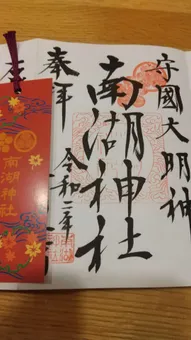 守國大明神
南湖神社
奉拝
令和二年
南湖神社